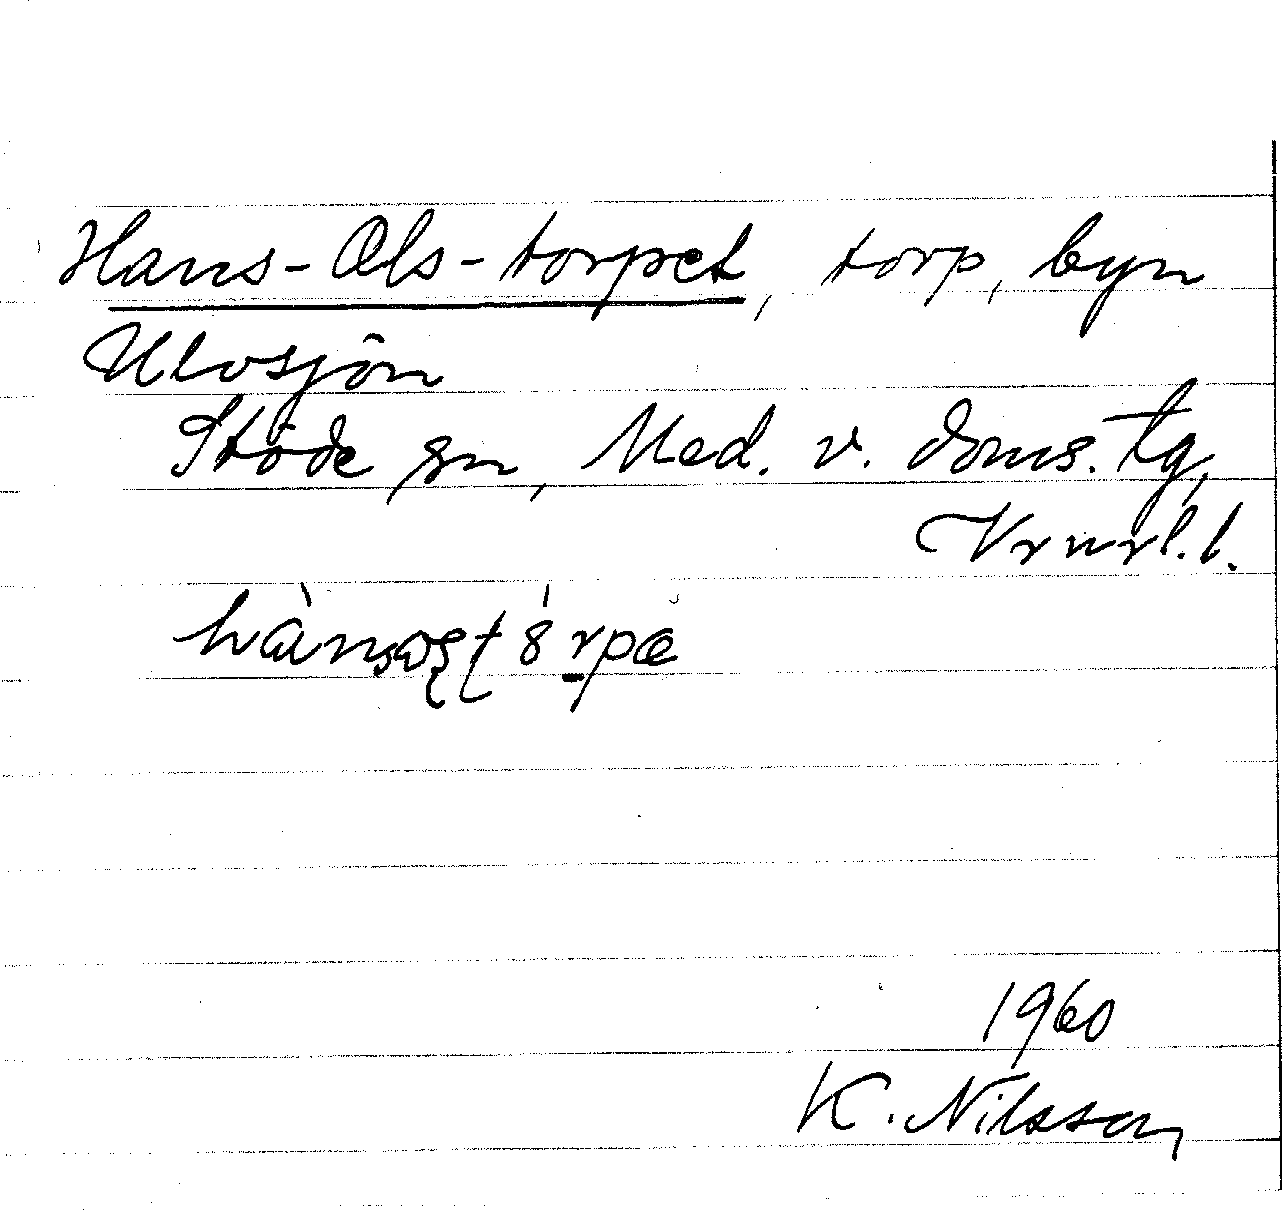 Hans-Ols-torpet, torp, byn
Ulvsjön
Stöde sn, Med. v. doms. tg,
Vrnrl. l.
1960
K. Nilsson